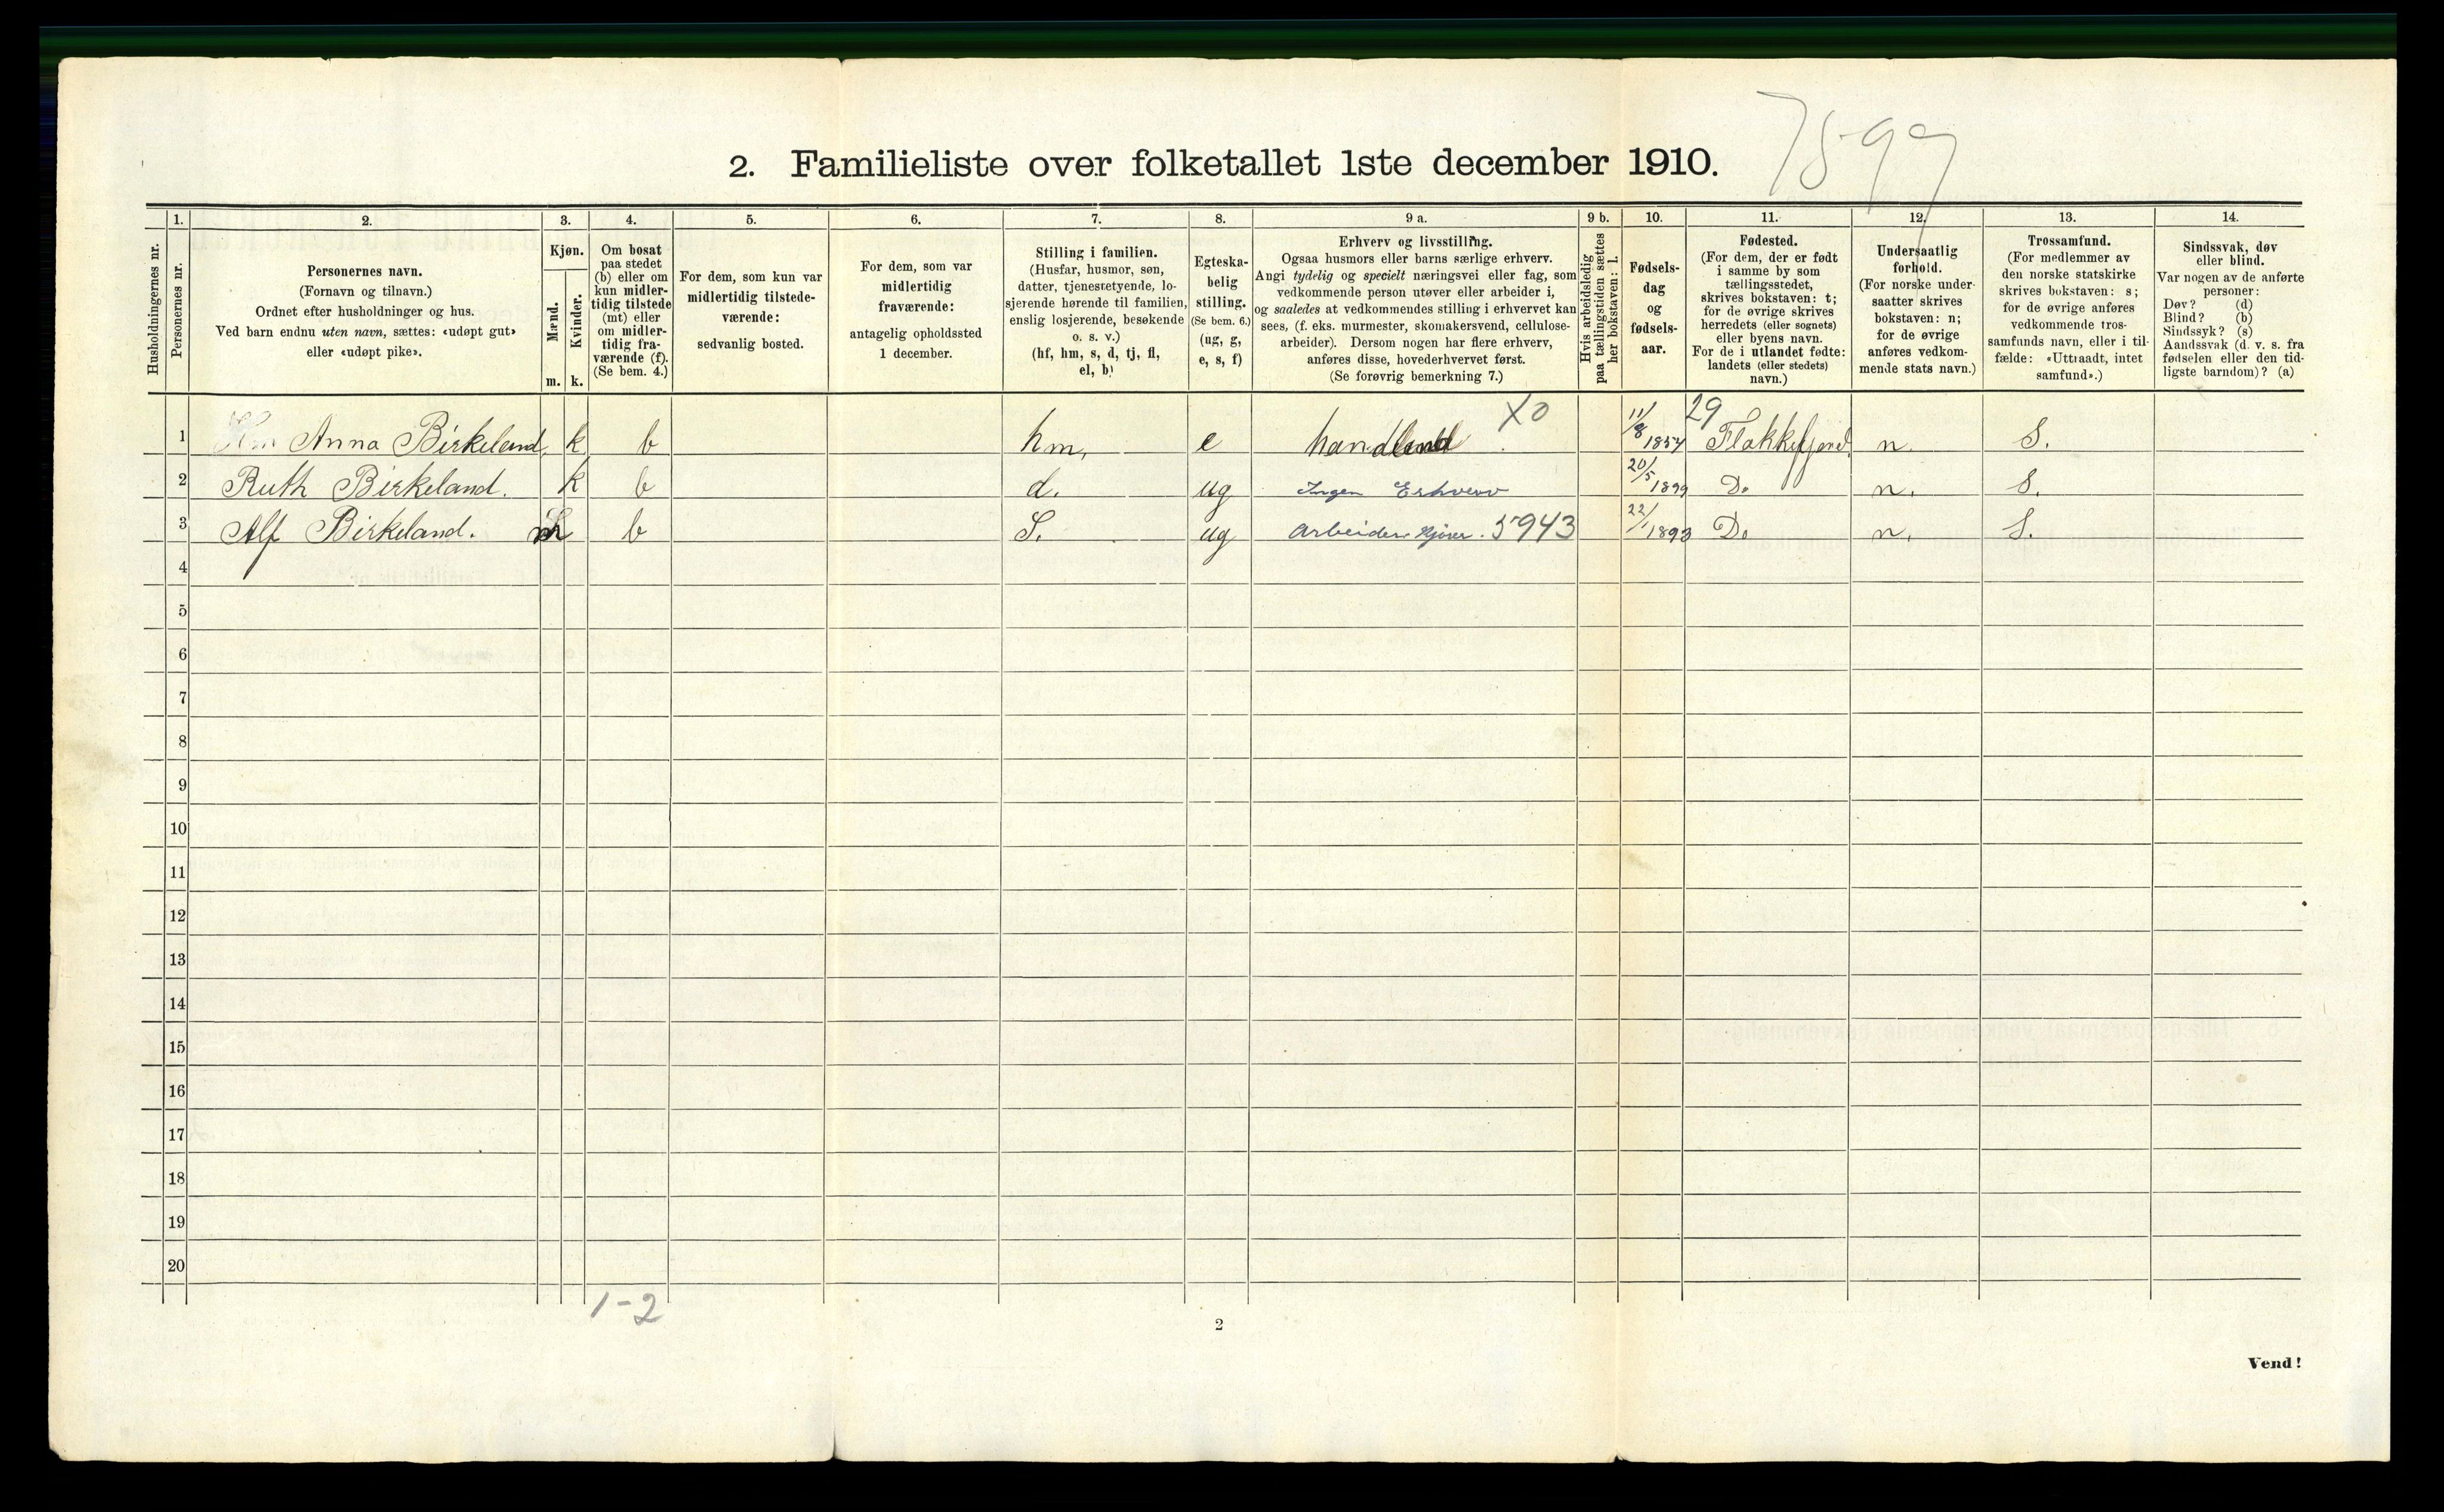 7599
2. Familieliste over folketallet 1ste december 1910.
Husholdningernes nr.
1. Personernes nr.
2. Personernes navn.
(Fornavn og tilnavn.)
Ordnet efter husholdninger og hus.
Ved barn endnu uten navn, sættes: «udøpt gut»
eller «udøpt pike».
3. Kjøn.
Mænd. m.
Kvinder. k.
4. Om bosat
paa stedet
(b) eller om
kun midler-
tidig tilstede
(mt) eller
om midler-
tidig fra-
værende (f).
(Se bem. 4.)
5. For dem, som kun var
midlertidig tilstede-
værende:
sedvanlig bosted.
6. For dem, som var
midlertidig
fraværende:
antagelig opholdssted
1 december.
7. Stilling i familien.
(Husfar, husmor, søn,
datter, tjenestetyende, lo-
sjerende hørende til familien,
enslig losjerende, besøkende
o. s. v.)
(hf, hm, s, d, tj, fl,
el, b)
8. Egteska-
belig
stilling.
(Se bem. 6.)
(ug, g,
e, s, f)
9 a. Erhverv og livsstilling.
Ogsaa husmors eller barns særlige erhverv.
Angi tydelig og specielt næringsvei eller fag, som
vedkommende person utøver eller arbeider i,
og saaledes at vedkommendes stilling i erhvervet kan
sees, (f. eks. murmester, skomakersvend, cellulose-
arbeider). Dersom nogen har flere erhverv,
anføres disse, hovederhvervet først.
(Se forøvrig bemerkning 7.)
9 b. Hvis arbeidsledig
paa tællingstiden sættes
her bokstaven: l.
10. Fødsels-
dag
og
fødsels-
aar.
11. Fødested.
(For dem, der er født
i samme by som
tællingsstedet,
skrives bokstaven: t;
for de øvrige skrives
herredets (eller sognets)
eller byens navn.
For de i utlandet fødte:
landets (eller stedets)
navn.)
12. Undersaatlig
forhold.
(For norske under-
saatter skrives
bokstaven: n;
for de øvrige
anføres vedkom-
mende stats navn.)
13. Trossamfund.
(For medlemmer av
den norske statskirke
skrives bokstaven: s;
for de øvrige anføres
vedkommende tros-
samfunds navn, eller i til-
fælde: «Uttraadt, intet
samfund».)
14. Sindssvak, døv
eller blind.
Var nogen av de anførte
personer:
Døv? (d)
Blind? (b)
Sindssyk? (s)
Aandssvak (d. v. s. fra
fødselen eller den tid-
ligste barndom)? (a)
1 Anna Birkeland k b hm, e X0 11/8 1857 29 Flekkefjord n. S.
2 Ruth Birkeland. k b d. ug Ingen Erhverv 20/5 1899 Do n. S.
3 Alf Birkeland. m b S. ug Arbeider 5943 22/1 1893 Do n. S.
4
5
6
7
8
9
10
11
12
13
14
15
16
17
18
19
20
1-2
2
Vend!